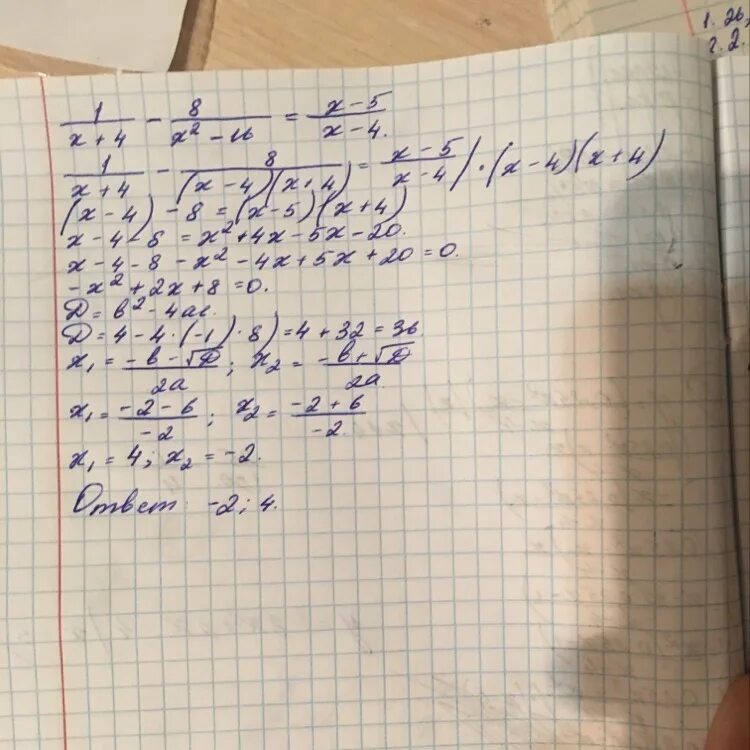 1/(x+4) - 8/(x² - 16) = (x-5)/(x-4).
1/(x+4) - 8/((x-4)(x+4)) = (x-5)/(x-4) / · (x-4)(x+4)
(x-4) - 8 = (x-5)(x+4)
x - 4 - 8 = x² + 4x - 5x - 20.
x - 4 - 8 - x² - 4x + 5x + 20 = 0.
-x² + 2x + 8 = 0.
D = b² - 4ac.
D = 4 - 4 · (-1) · 8) = 4 + 32 = 36.
x₁ = (-b - √D)/2a ; x₂ = (-b + √D)/2a
x₁ = (-2 - 6)/-2 ; x₂ = (-2 + 6)/-2.
x₁ = 4; x₂ = -2.
Ответ: -2; 4.
1. 26,
2. 2.